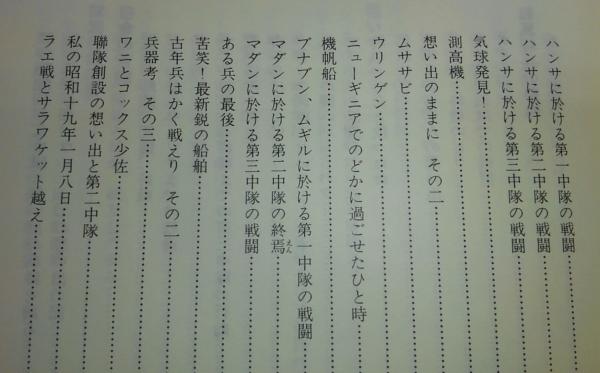 ハンサに於ける第一中隊の戦闘
ハンサに於ける第二中隊の戦闘
ハンサに於ける第三中隊の戦闘
気球発見!
測高機
想い出のままに その二
ムササビ
ウリンゲン
ニューギニアでのどかに過ごせたひと時
機帆船
ブナブン、ムギルに於ける第一中隊の戦闘
マダンに於ける第二中隊の終焉
えん
マダンに於ける第三中隊の戦闘
ある兵の最後
苦笑!最新鋭の船舶
古年兵はかく戦えり その二
兵器考 その三
ワニとコックス少佐
聯隊創設の想い出と第二中隊
私の昭和十九年一月八日
ラエ戦とサラワケット越え